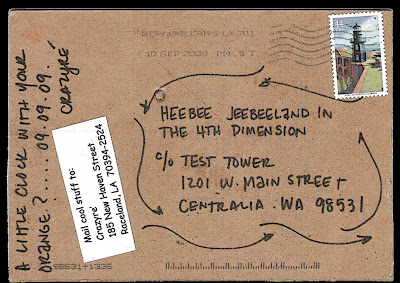 NEW ORLEANS LA 701
10 SEP 2009 PM 5 T
44
HEEBEE JEEBEELAND IN
THE 4TH DIMENSION
c/o TEST TOWER
1201 W. MAIN STREET
CENTRALIA WA 98531
A LITTLE CLOCK WITH YOUR
ORANGE?..... 09.09.09.
CRAZYRÉ
Mail cool stuff to:
Crazyré
185 New Haven Street
Raceland, LA 70394-2524
98531+1325